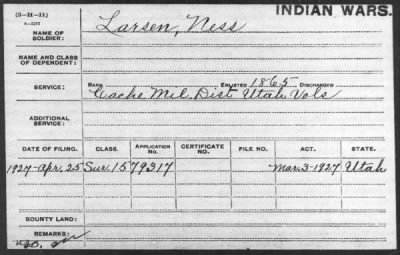 (3-H-11)
INDIAN WARS.
NAME OF SOLDIER: Larsen, Ness
NAME AND CLASS OF DEPENDENT:
SERVICE: RANK ENLISTED 1865 DISCHARGED
Cache Mil. Dist. Utah Vols
ADDITIONAL SERVICE:
DATE OF FILING. CLASS. APPLICATION NO. CERTIFICATE NO. FILE NO. ACT. STATE.
1927-Apr. 25 Sur. 1579317 Mar. 3-1927 Utah
BOUNTY LAND:
REMARKS: